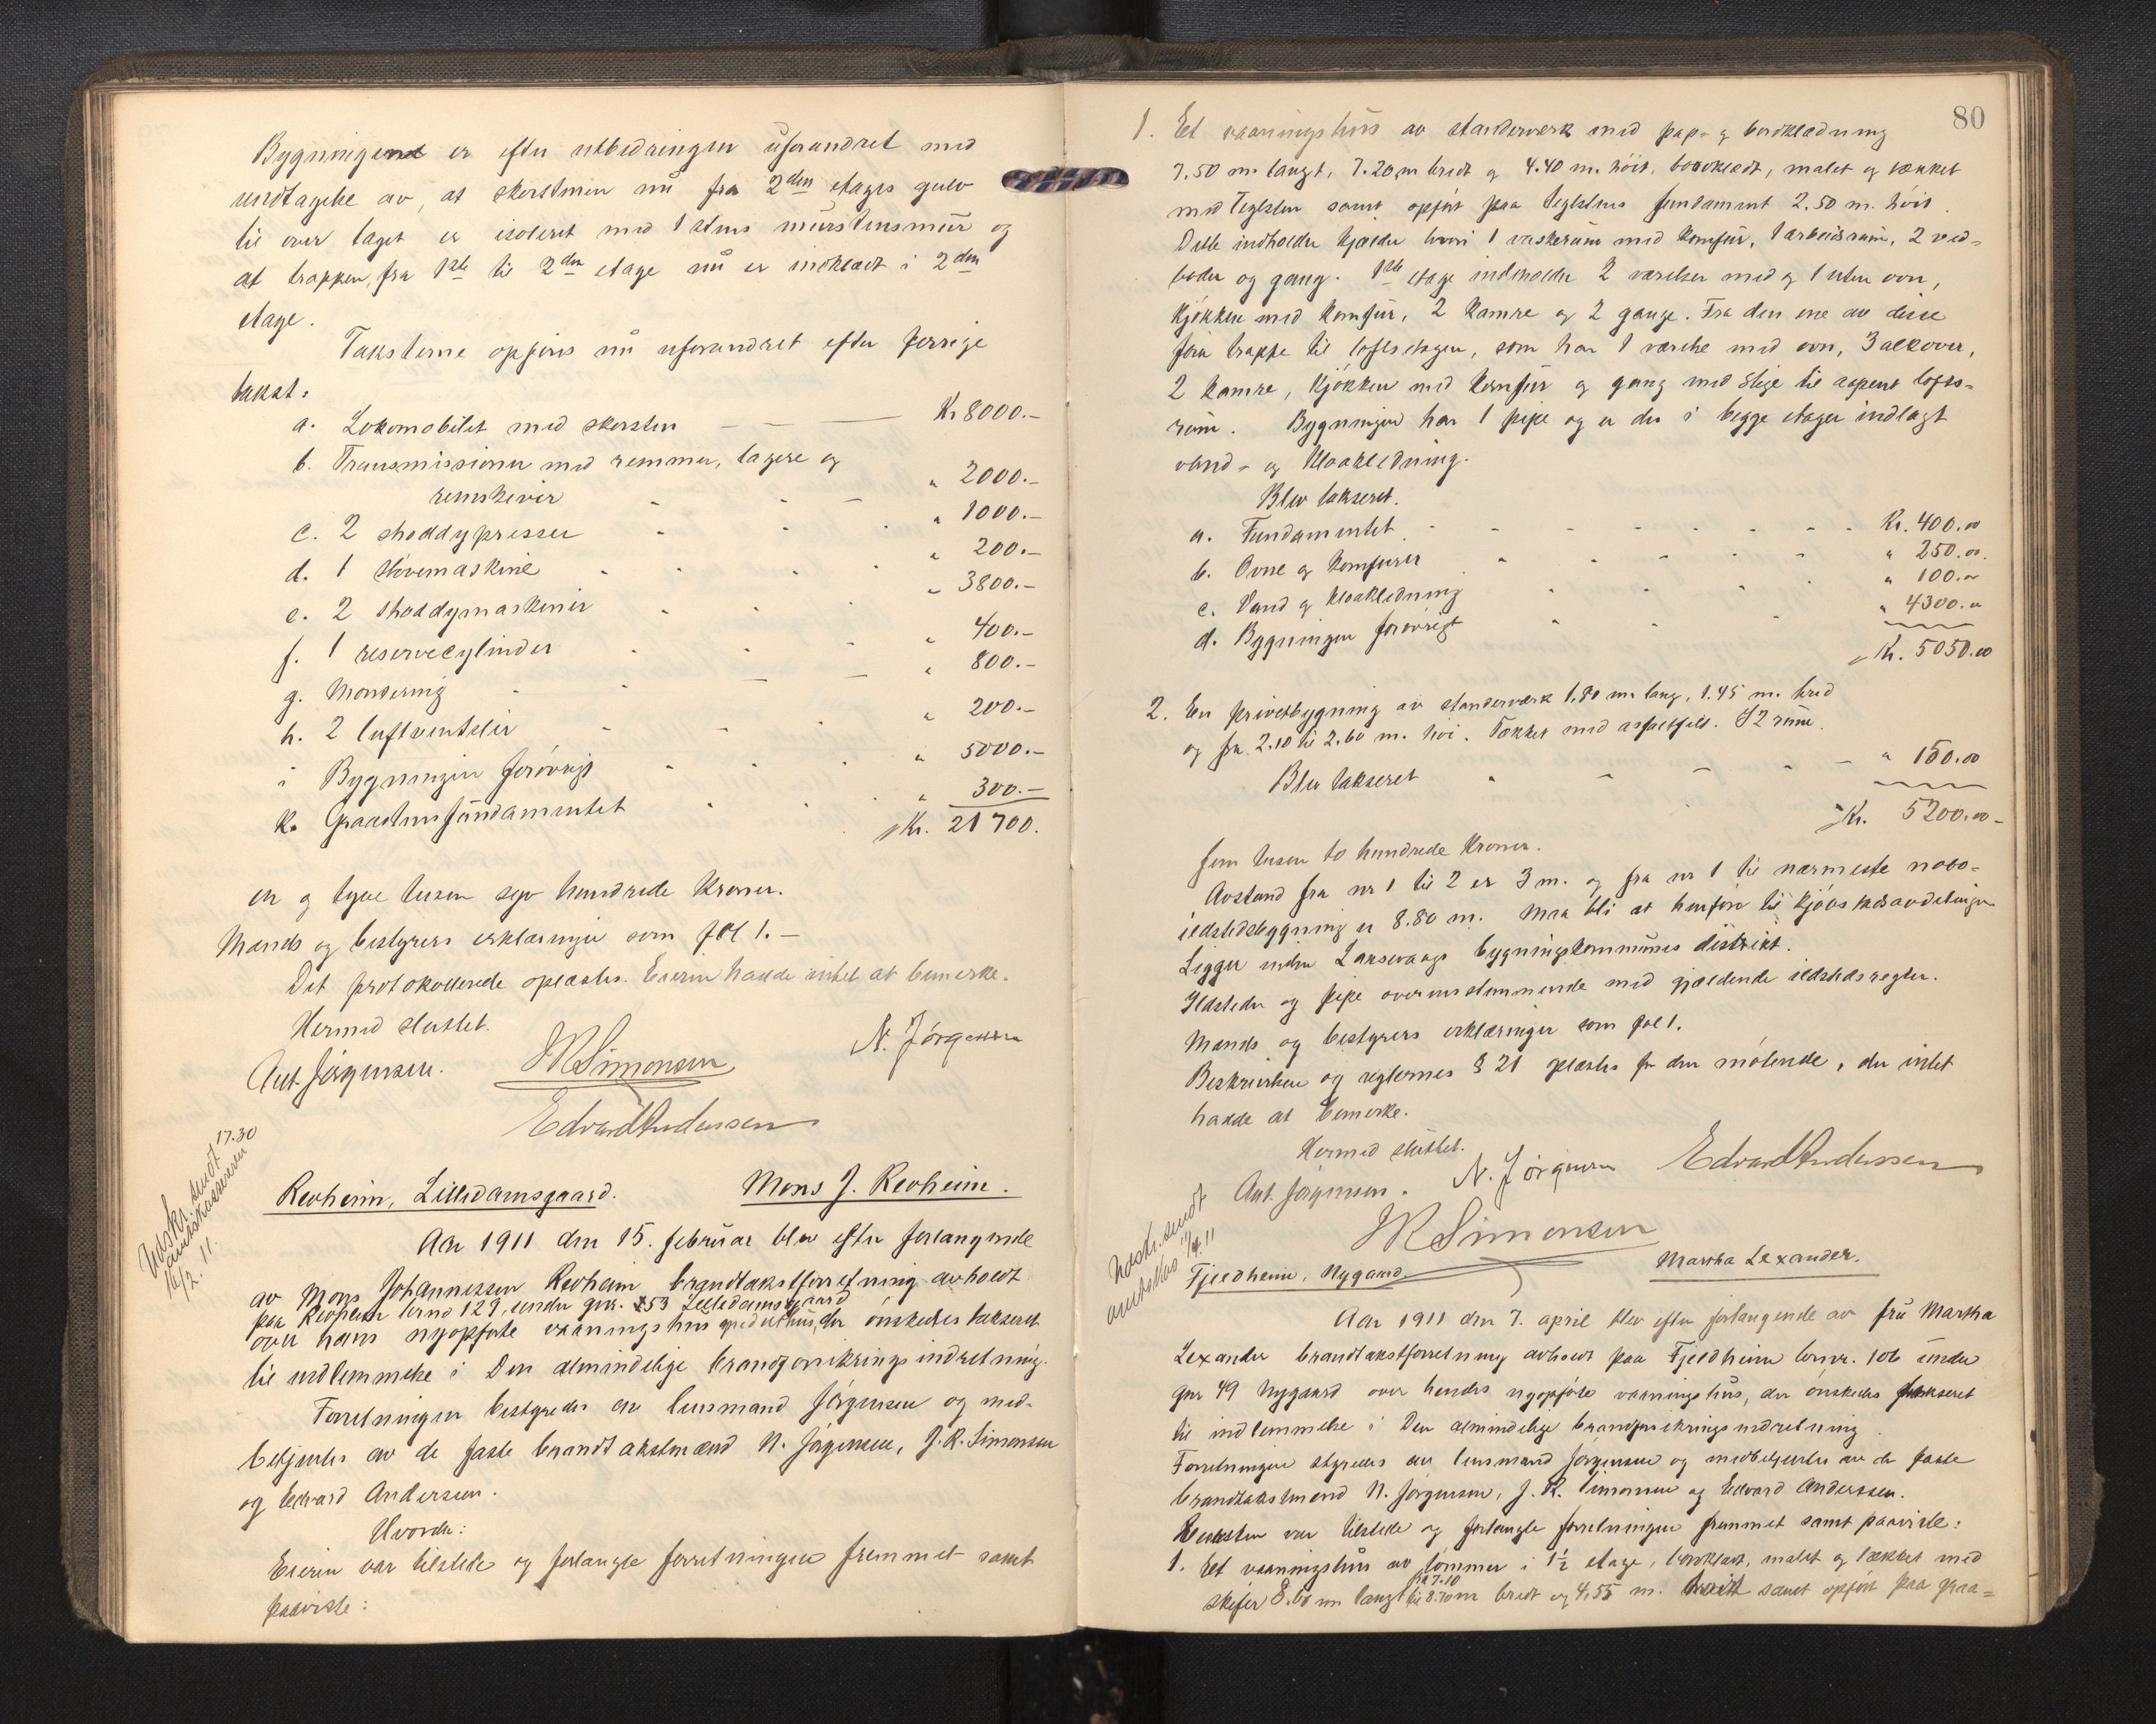 Bygningene er efter utbedringen uforandret med
undtagelse av, at skorstenen nu fra 2den etages gulv
til over taget er isoleret med 1 stens murstensmur og
at trappen fra 1ste til 2den etage nu er indklædt i 2den
etage.
Taksterne opføres nu uforandret efter forrige
takst:
a. Lokomobilet med skorsten — — Kr 8000.-
b. Transmissioner med remmer, lagere og
remskiver - - - " 2000.-
c. 2 shoddypresser - - - " 1000.-
d. 1 støvemaskine - - - " 200.-
e. 2 shoddymaskiner - - - " 3800.-
f. 1 reservecylinder - - - " 400.-
g. Montering - - - " 800.-
h. 2 luftventiler - - - " 200.-
i Bygningen forøvrigt - - - " 5000.-
k. Graastensfundamentet - - - " 300.-
Kr. 21700.
en og tyve tusen syv hundrede kroner.
Mænds og bestyrers erklæringer som fol 1. -
Det protokollerede oplæstes. Eieren hadde intet at bemerke.
Hermed sluttet.
Ant. Jørgensen. J R Simonsen N. Jørgensen
Edvard Anderssen
Utskr. sendt 17.30
amtskassereren
16/2. 11.
Revheim, Lilledamsgaard. Mons J. Revheim.
Aar 1911 den 15. februar blev efter forlangende
av Mons Johannessen Revheim brandtakstforretning avholdt
paa Revheim brno 129, under gnr. 153 Lilledamsgaard
over hans nyopførte vaaningshus og vedskjul, der ønskedes takseret
til indlemmelse i Den almindelige brandforsikringsindretning.
Forretningen bestyredes av lensmand Jørgensen og med-
betjentes av de faste brandtakstmænd N. Jørgensen, J. R. Simonsen
og Edvard Andersen.
Hvorda:
Eieren var tilstede og forlangte forretningen fremmet samt
paaviste:
80
1. Et vaaningshus av standerværk med pap- og bordklædning
7.50 m. langt, 7.20 m bredt og 4.40 m. høit, bordklædt, malet og tækket
med Teglsten samt opført paa teglstens fundament 2.50 m. høit.
Dette indholder kjælder hvori 1 vaskerum med komfur, 1 arbeidsrum, 2 ved-
boder og gang. 1ste etage indeholder 2 værelser med og 1 uten ovn,
kjøkken med komfur, 2 kamre og 2 gange. Fra den ene av disse
fører trappe til loftsetagen, som har 1 værelse med ovn, 3 alkover,
2 kamre, kjøkken med komfur og gang med stige til aapent lofts-
rum. Bygningen har 1 pipe og er der i begge etager indlagt
vand- og kloakledning.
Blev takseret.
a. Fundamentet - - - Kr. 400.00
b. Ovne og komfurer - - - " 250.00
c. Vand og kloakledning - - - " 100.00
d. Bygningen forøvrigt - - - " 4300.00
Kr. 5050.00
2. En privetbygning av standerværk 1.80 m. lang, 1.45 m. bred
og fra 2.10 til 2.60 m. høi. Tækket med asfaltfilt. I 2 rum.
Blev takseret - - - " 150.00
Kr. 5200.00-
fem tusen to hundrede kroner.
Avstand fra nr 1 til 2 er 3 m. og fra nr 1 til nærmeste nabo-
ildstedsbygning er 8.80 m. Maa bli at henføre til kjøbstadsavdelingen
Ligger inden Laksevaags bygningskommunes distrikt.
Ildsteder og pipe overensstemmende med gjældende ildstedsregler.
Mænds og bestyrers erklæringer som fol 1.
Beskrivelsen og reglernes § 21 oplæstes for den møtende, der intet
hadde at bemerke.
Hermed sluttet.
Ant. Jørgensen. N. Jørgensen Edvard Anderssen
J R Simonsen
Utskr. sendt
amtskas 11/4.11
Fjeldheim, Nygaard. Martha Lexander.
Aar 1911 den 7. april blev efter forlangende av fru Martha
Lexander brandtakstforretning avholdt paa Fjeldheim brnr. 106 under
gnr 49 Nygaard over hendes nyopførte vaaningshus, der ønskedes takseret
til indlemmelse i Den almindelige brandforsikringsindretning.
Forretningen styredes av lensmand Jørgensen og medbetjentes av de faste
brandtakstmænd N. Jørgensen, J. R. Simonsen og Edvard Anderssen.
var tilstede og forlangte forretningen fremmet samt paaviste:
1. Et vaaningshus av tømmer i 1½ etage, bordklædt, malet og tækket med
fra 7.10
skifer 8.60 m langt til 8.70 m bredt og 4.55 m. høit samt opført paa graa=